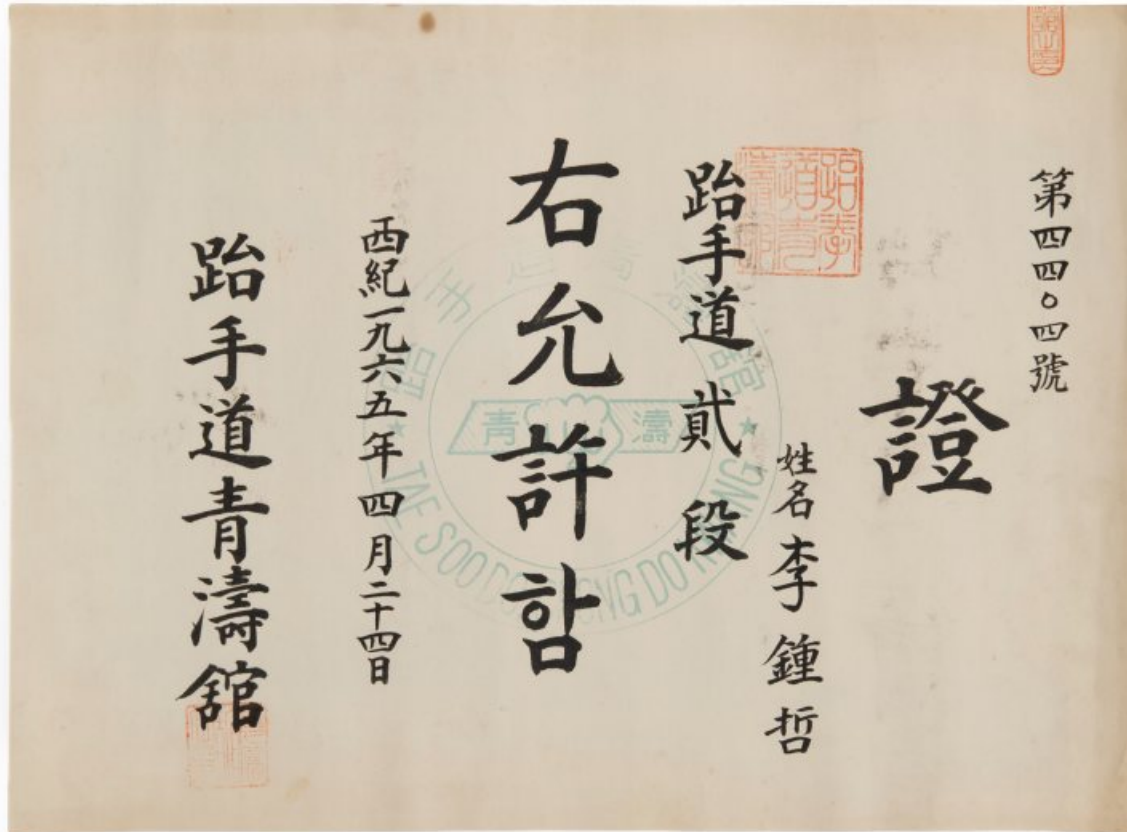 第四四〇四號
證
姓名 李鍾哲
跆手道 貳段
右允許함
西紀一九六五年四月二十四日
跆手道青濤舘
跆手道青濤舘
青濤
TAE SOO DO CHUNG DO KWAN
跆拳
道青
濤舘